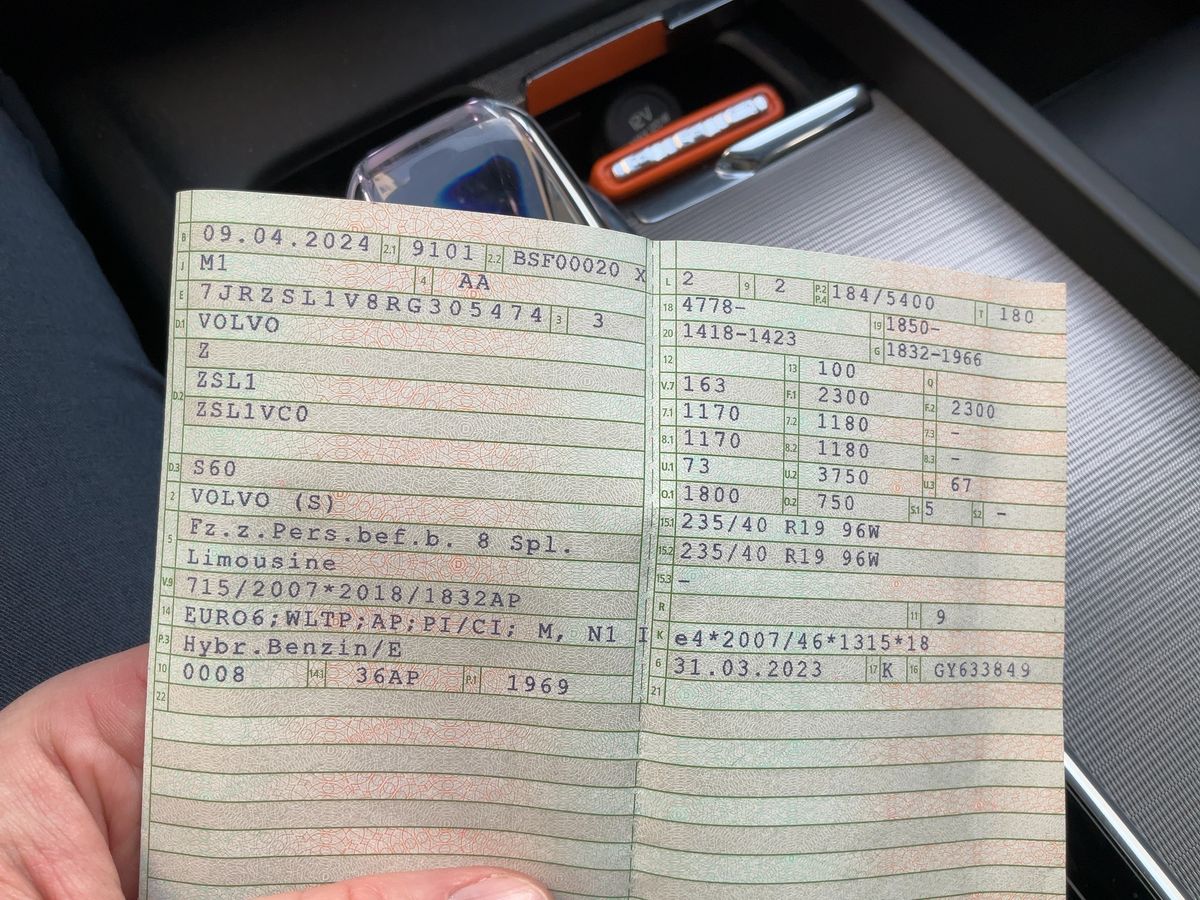 12V
B 09.04.2024 2.1 9101 2.2 BSF00020 X
J M1 4 AA
E 7JRZSL1V8RG305474 3 3
D.1 VOLVO
Z
D.2 ZSL1
ZSL1VC0
D.3 S60
2 VOLVO (S)
5 Fz.z.Pers.bef.b. 8 Spl.
Limousine
V.9 715/2007*2018/1832AP
14 EURO6;WLTP;AP;PI/CI; M, N1 I
P.3 Hybr.Benzin/E
10 0008 14.1 36AP P.1 1969
22
L 2 9 2 P.2 P.4 184/5400 T 180
18 4778- 19 1850-
20 1418-1423 G 1832-1966
12 13 100 Q
V.7 163 F.1 2300 F.2 2300
7.1 1170 7.2 1180 7.3 -
8.1 1170 8.2 1180 8.3 -
U.1 73 U.2 3750 U.3 67
O.1 1800 O.2 750 S.1 5 S.2 -
15.1 235/40 R19 96W
15.2 235/40 R19 96W
15.3 -
R 11 9
K e4*2007/46*1315*18
6 31.03.2023 17 K 16 GY633849
21